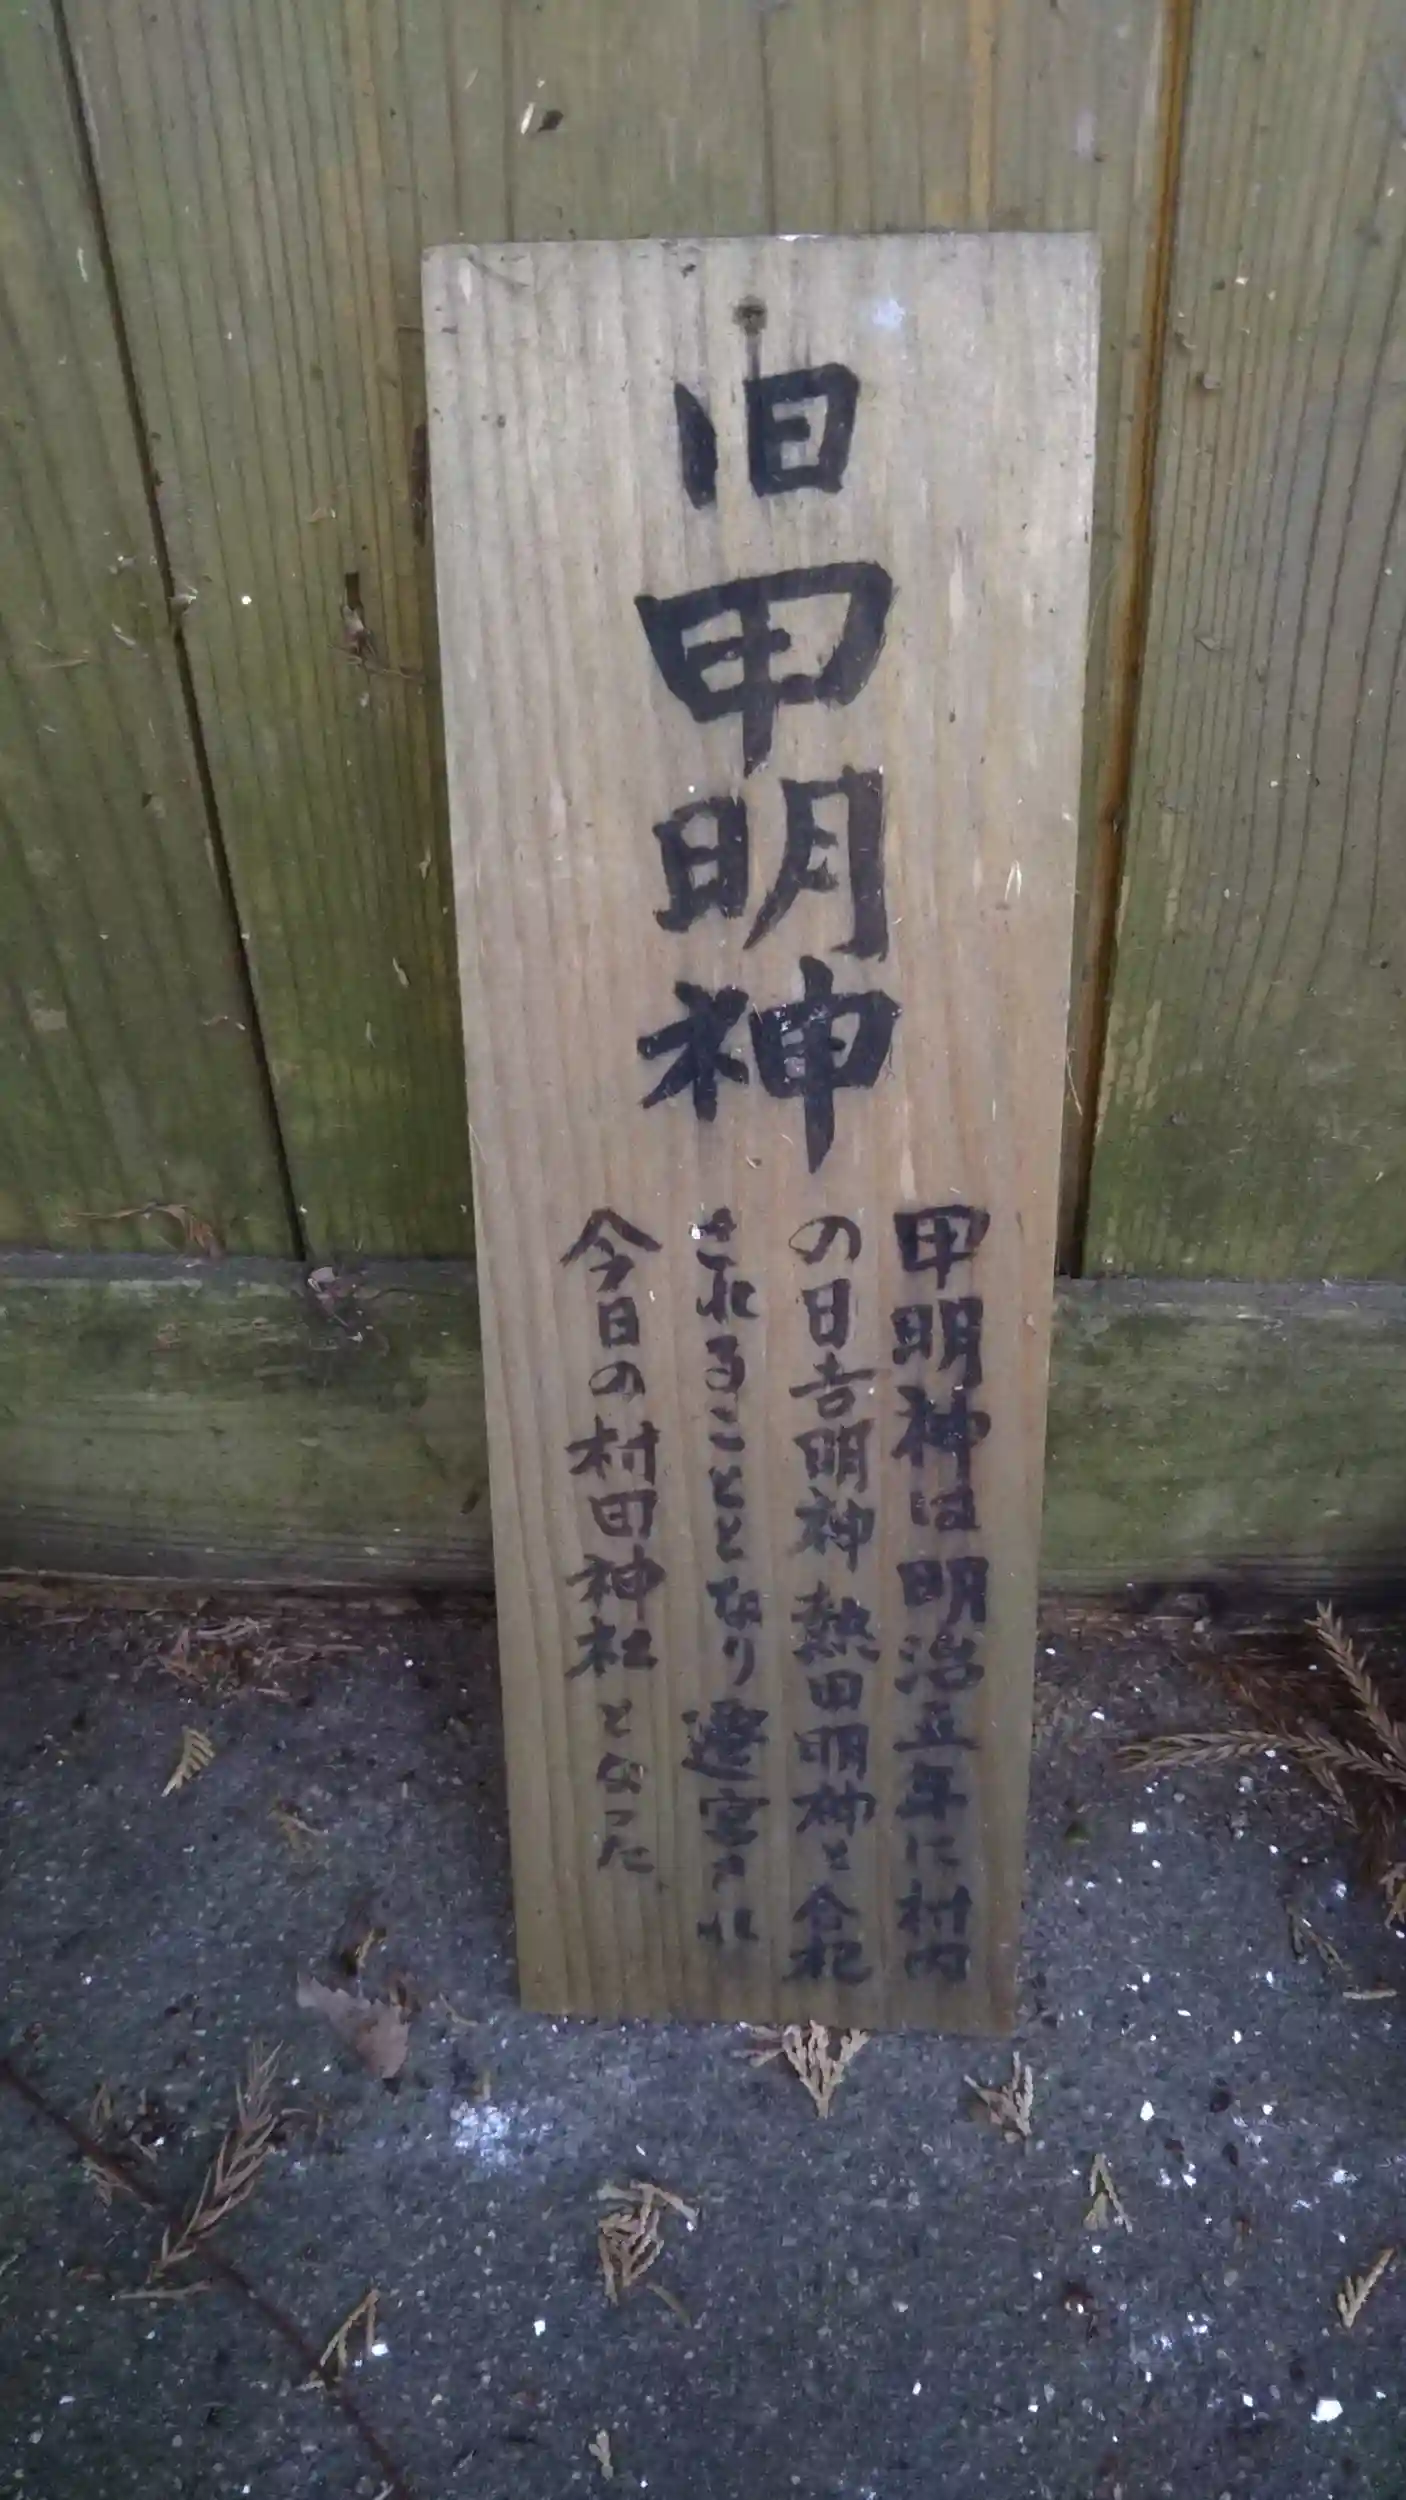 旧甲明神
甲明神は明治五年に村内
の日吉明神熱田明神と合祀
されることとなり遷宮され
今日の村田神社となった